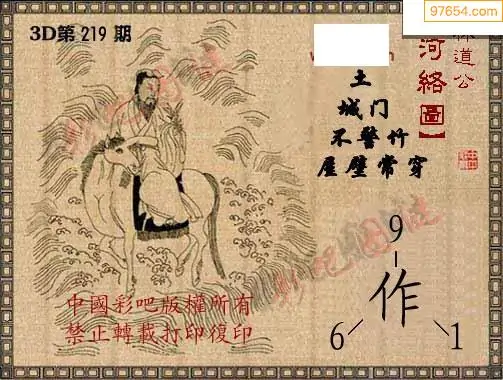 97654.com
3D第 219 期
林道公
河絡圖】
土
城门
不警竹
屋壁常穿
9
作
6
1
中國彩吧版權所有
禁止轉載打印復印